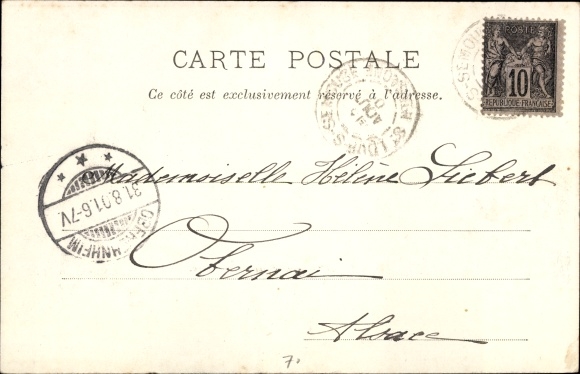 CARTE POSTALE
Ce côté est exclusivement réservé à l'adresse.
POSTES
10
REPUBLIQUE FRANÇAISE
AOUT
31.8.01.6-7V
Mademoiselle Hélène Siebert
Obernai
Alsace
7.